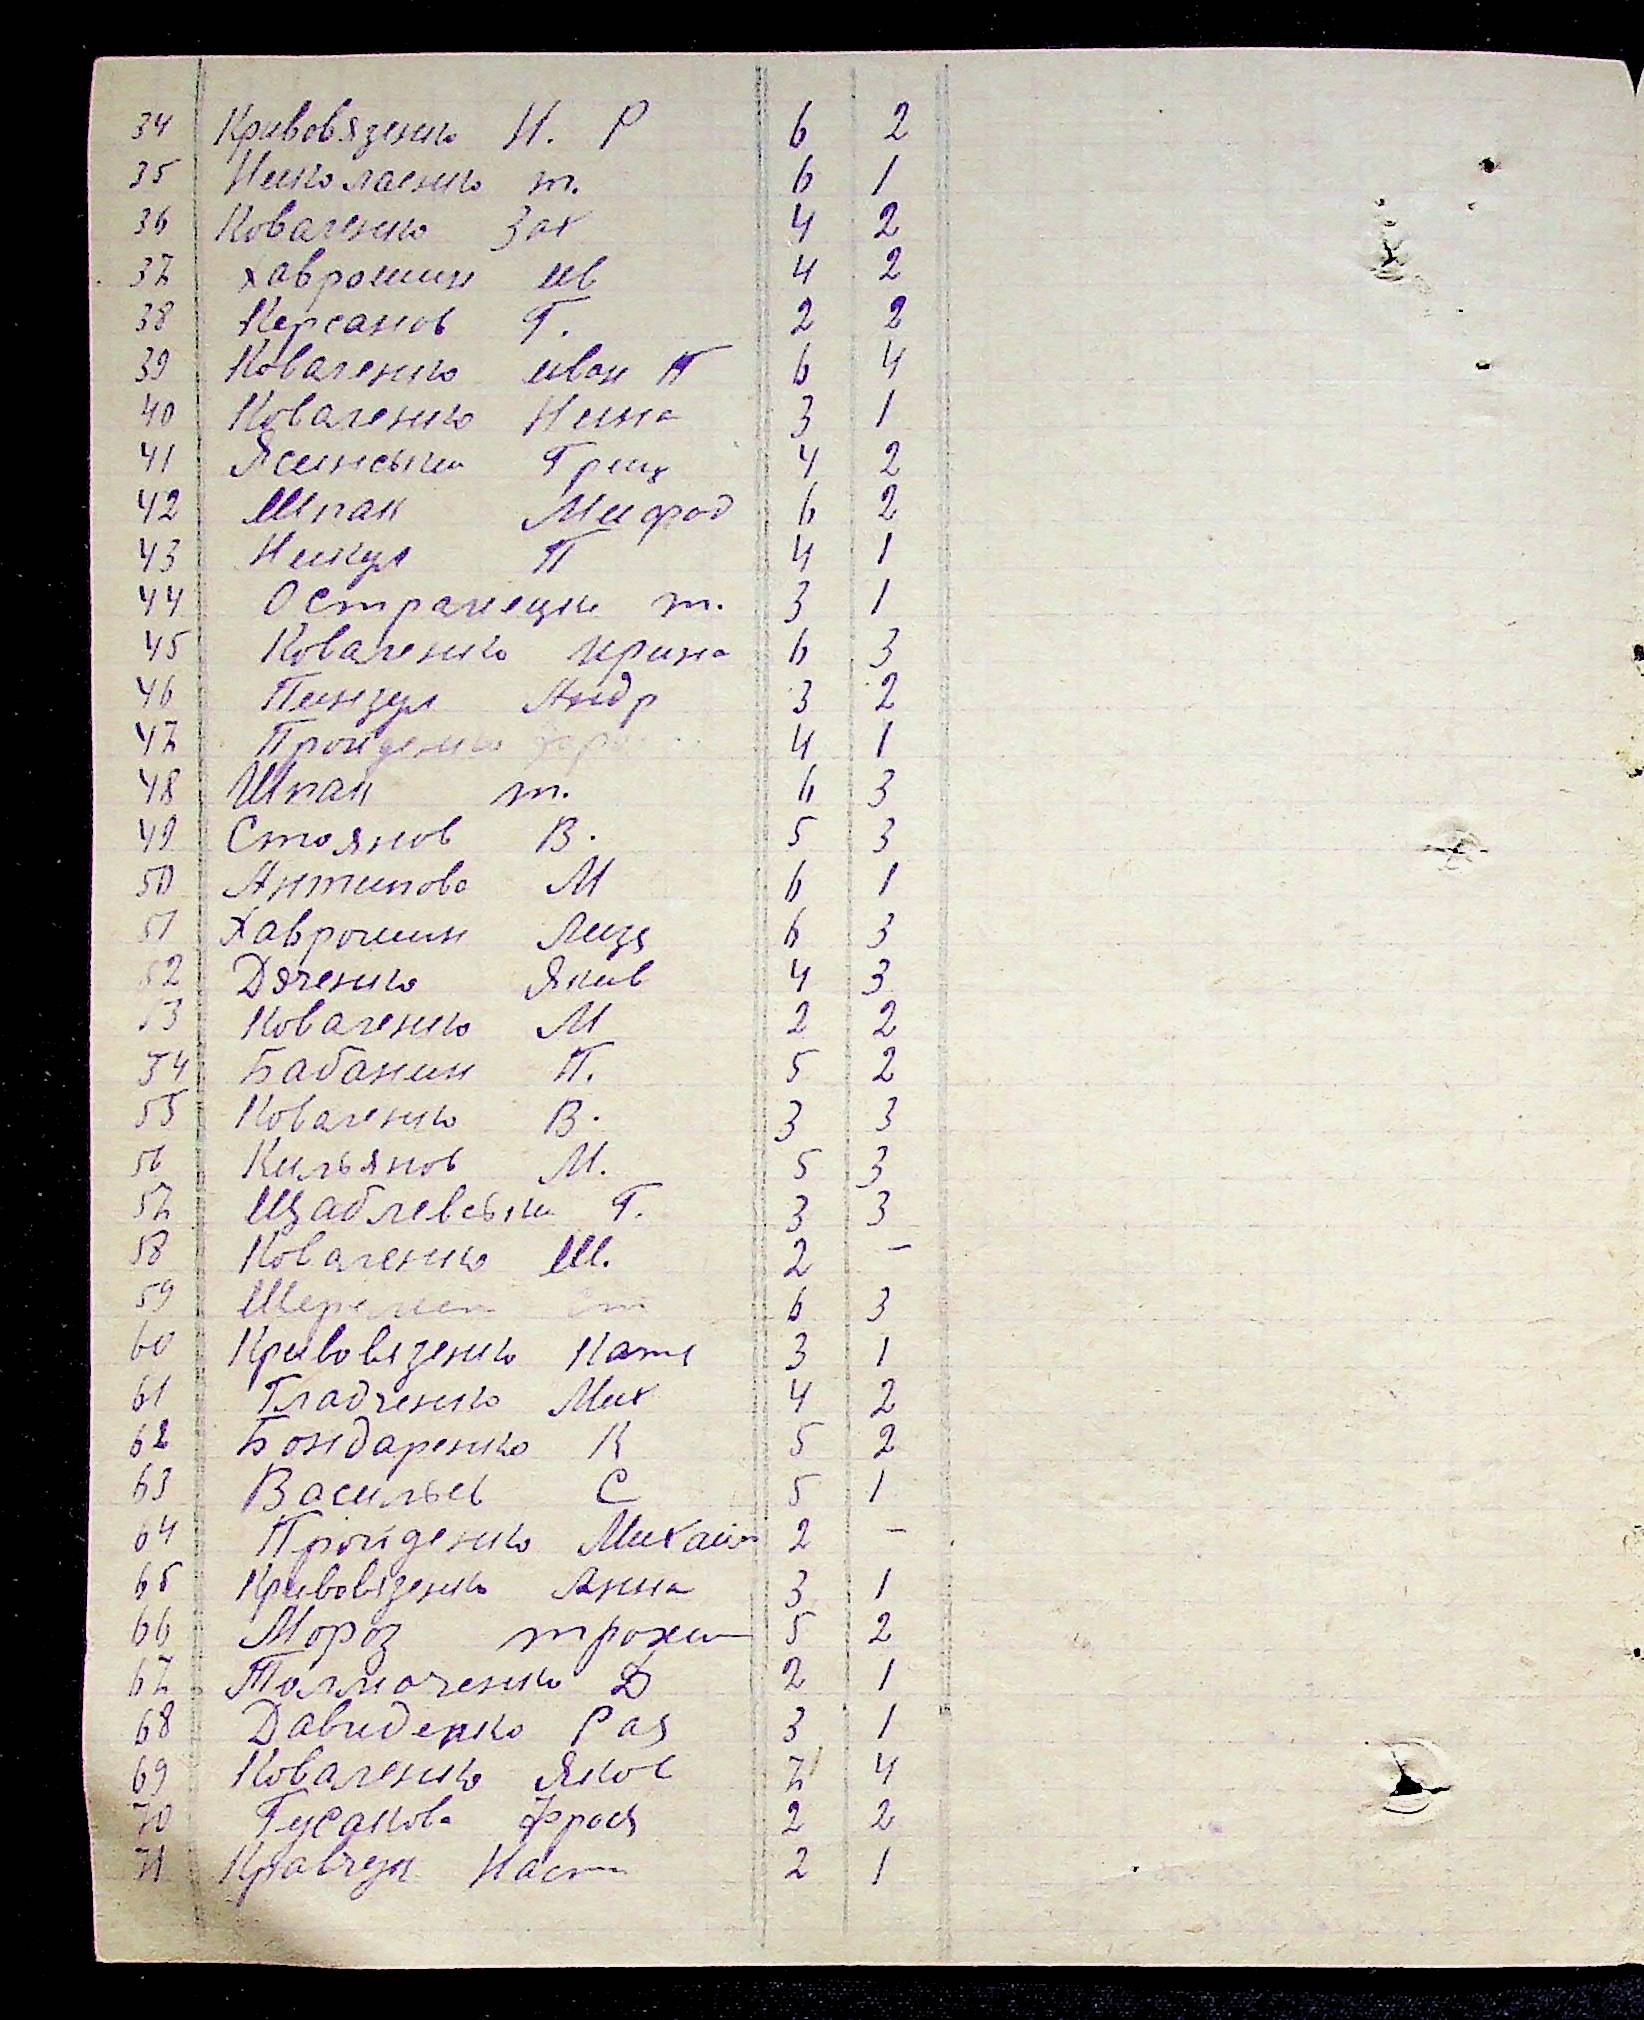 34 Кривовязенко Н. Р 6 2
35 Николаенко т. 6 1
36 Коваленко Зах 4 2
37 Хаврошин ив 4 2
38 Керсанов Г. 2 2
39 Коваленко иван П 6 4
40 Коваленко Нина 3 1
41 Ясинськи Гриц 4 2
42 Шпак Мифод 6 2
43 Никул П 4 1
44 Остранецки т. 3 1
45 Коваленко ирина 6 3
46 Пинзул Андр 3 2
47 Пройденко 4 1
48 Шпак т. 6 3
49 Стоянов В. 5 3
50 Антипова М 6 1
51 Хаврошин Лиза 6 3
52 Дяченко Якив 4 3
53 Коваленко М 2 2
54 Бабанин П. 5 2
55 Коваленко В. 3 3
56 Кильянов М. 5 3
57 Щаблевськи Г. 3 3
58 Коваленко Ш. 2 –
59 Шеремет 6 3
60 Кривовязенко Катя 3 1
61 Гладченко Мих 4 2
62 Бондаренко К 5 2
63 Васильев С 5 1
64 Пройденко Михаил 2 –
65 Кривовязенко Анна 3 1
66 Мороз трохим 5 2
67 Толмоченко Д 2 1
68 Давиденко Рая 3 1
69 Коваленко Яков 7 4
70 Гусакова Фрося 2 2
71 Кравчук Настя 2 1